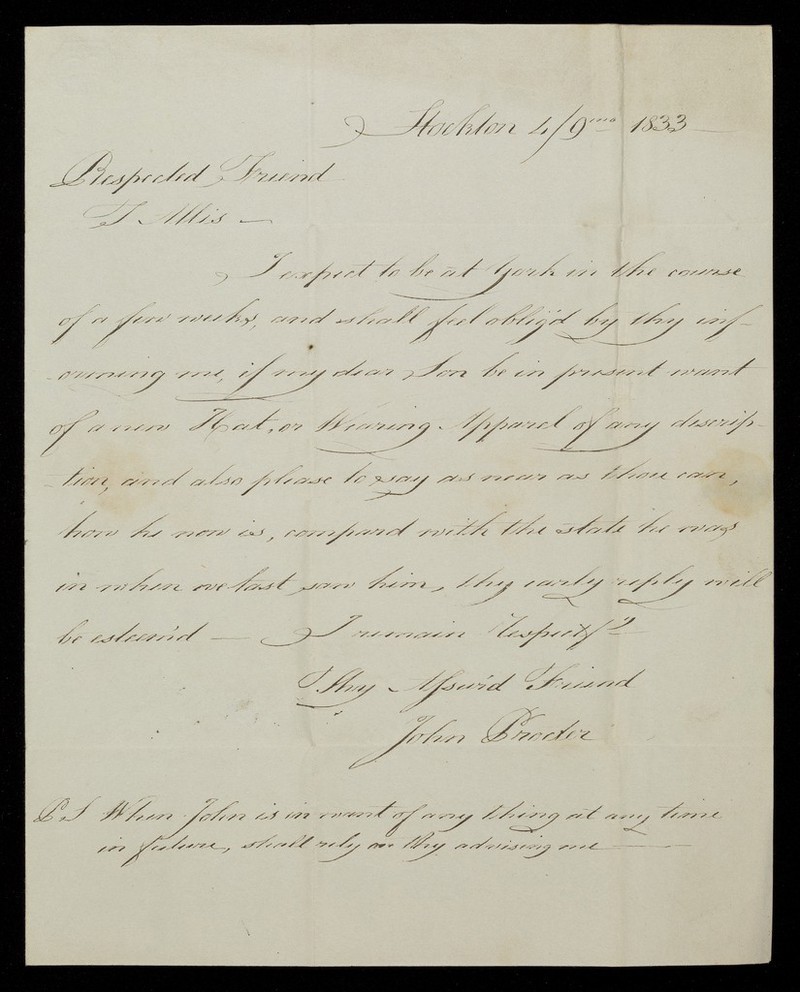 Stockton 4/9mo 1833
Respected Friend
T Allis —
I expect to be at York in the course
of a few weeks, and shall feel oblig'd by thy inf-
-orming me, if my dear Son be in present want
of a new Hat, or Wearing Apparel of any descrip-
-tion, and also please to say as near as thou can,
how he now is, compard with the state he was
in when we last saw him, thy early reply will
be esteem'd — I remain Respectfy
Thy Assur'd Friend
John Procter
PS When John is in want of any thing at any time
in future, shall rely on thy advising me —